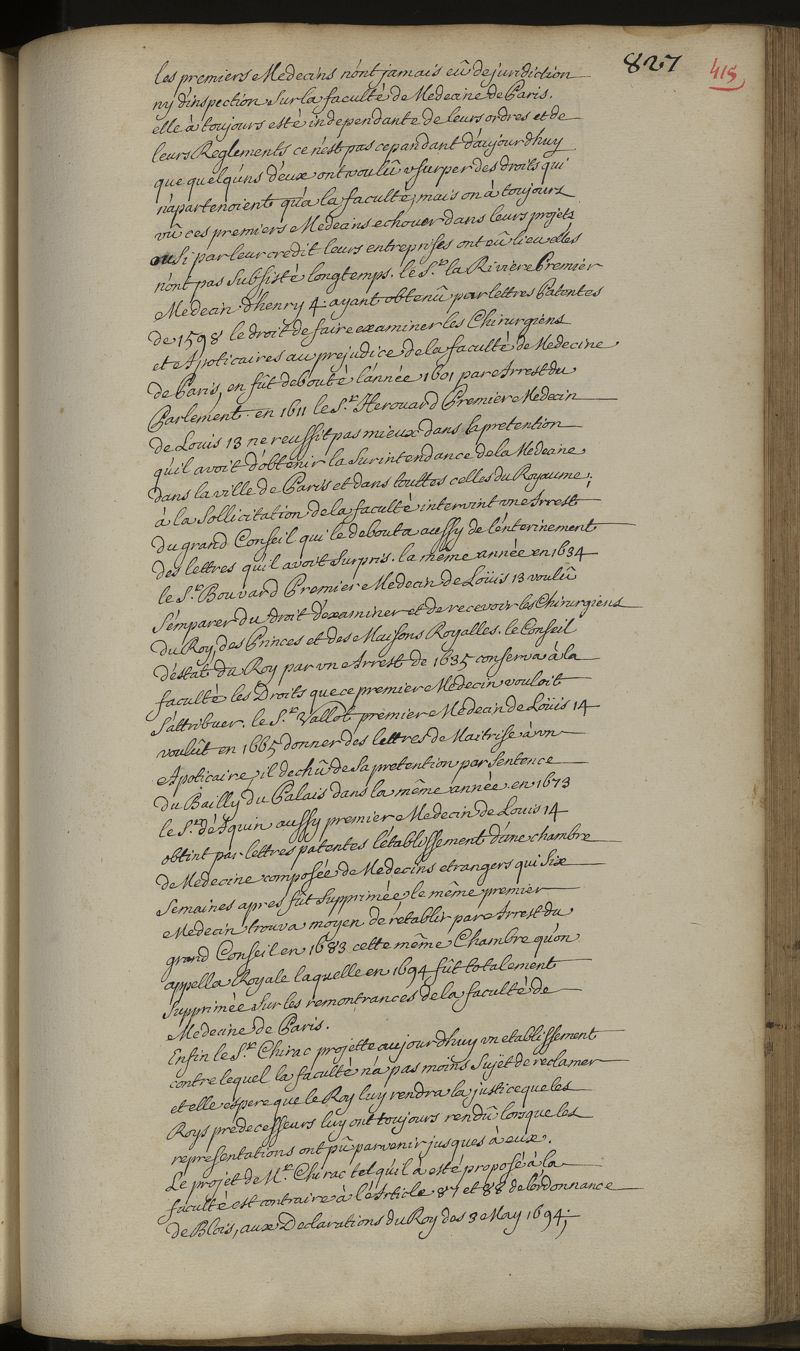 827
415
les premiers Medecins n'ont jamais eû de juridiction
ny d'inspection sur la faculté de Medecine de Paris.
elle à toujours esté independante de leurs ordres et de
leurs Reglements ce n'est pas cependant d'aujourdhuy
que quelqu'uns d'eux ont voulû usurper des droits qui
n'apartenoient qu'a la faculté; mais on à toujours
vû ces premiers Medecins echouer dans leurs projets
ou si par leur credit leurs entreprises ont eû lieu elles
n'ont pas subsisté longtemps. le S.r la Riviere Premier
Medecin d'henry 4. ayant obtenû par lettres Patentes
de 1598 le droit de faire examiner les Chirurgiens
et Apoticaires au prejudice de la faculté de Medecine
de Paris, en fût debouté l'année 1601 par Arrest du
Parlement. en 1611 le S.r Herouard Premier Medecin
de Louis 13 ne reussit pas mieux dans la pretention
qu'il avoit d'obtenir la surintendance de la Medecine
dans la ville de Paris et dans touttes celles du Royaume;
à la sollicitation de la faculté intervint un Arrest
du grand Conseil qui le debouta aussy de l'enterinement
des lettres qu'il avoit surpris. la même année en 1634
le S.r Bouvard Premier Medecin de Loüis 13 voulû
s'emparer du droit d'examiner et de recevoir les Chirurgiens
du Roy, des Princes et des Maisons Royalles. le Conseil
d'estat du Roy par un Arrest de 1635 conserva à la
faculté les Droits que ce premier Medecin vouloit
s'attribuer. le S.r Vallot premier Medecin de Loüis 14
voulût en 1665 donner des lettres de Maitrise à un
Apoticaire, il dechû de sa pretention par sentence
du Bailly du Palais dans la même année. en 1673
le S.r d'Aquin aussy premier Medecin de Louis 14
obtint par lettres patentes l'établissement d'une chambre
de Medecine composée de Medecins etrangers qui six
semaines apres fût supprimée, le même premier
Medecin trouva moyen de rétablir par Arrest du
grand Conseil en 1683 cette même Chambre qu'on
appella Royale laquelle en 1694 fût totalement
supprimée sur les remontrances de la faculté de
Medecine de Paris.
Enfin le S.r Chirac projette aujourdhuy un etablissement
contre lequel la faculté n'a pas moins sujet de reclamer
et elle espere que le Roy luy rendra la justice que les
Roys predecesseurs luy ont toujours rendû lorsque les
representations ont pû parvenir jusques à eux.
Le projet de M.r Chirac tel qu'il à esté proposé à la
faculté est contraire à l'Article 87 et 88 de l'ordonnance
de Blois, aux Declarations du Roy des 3 May 1694;